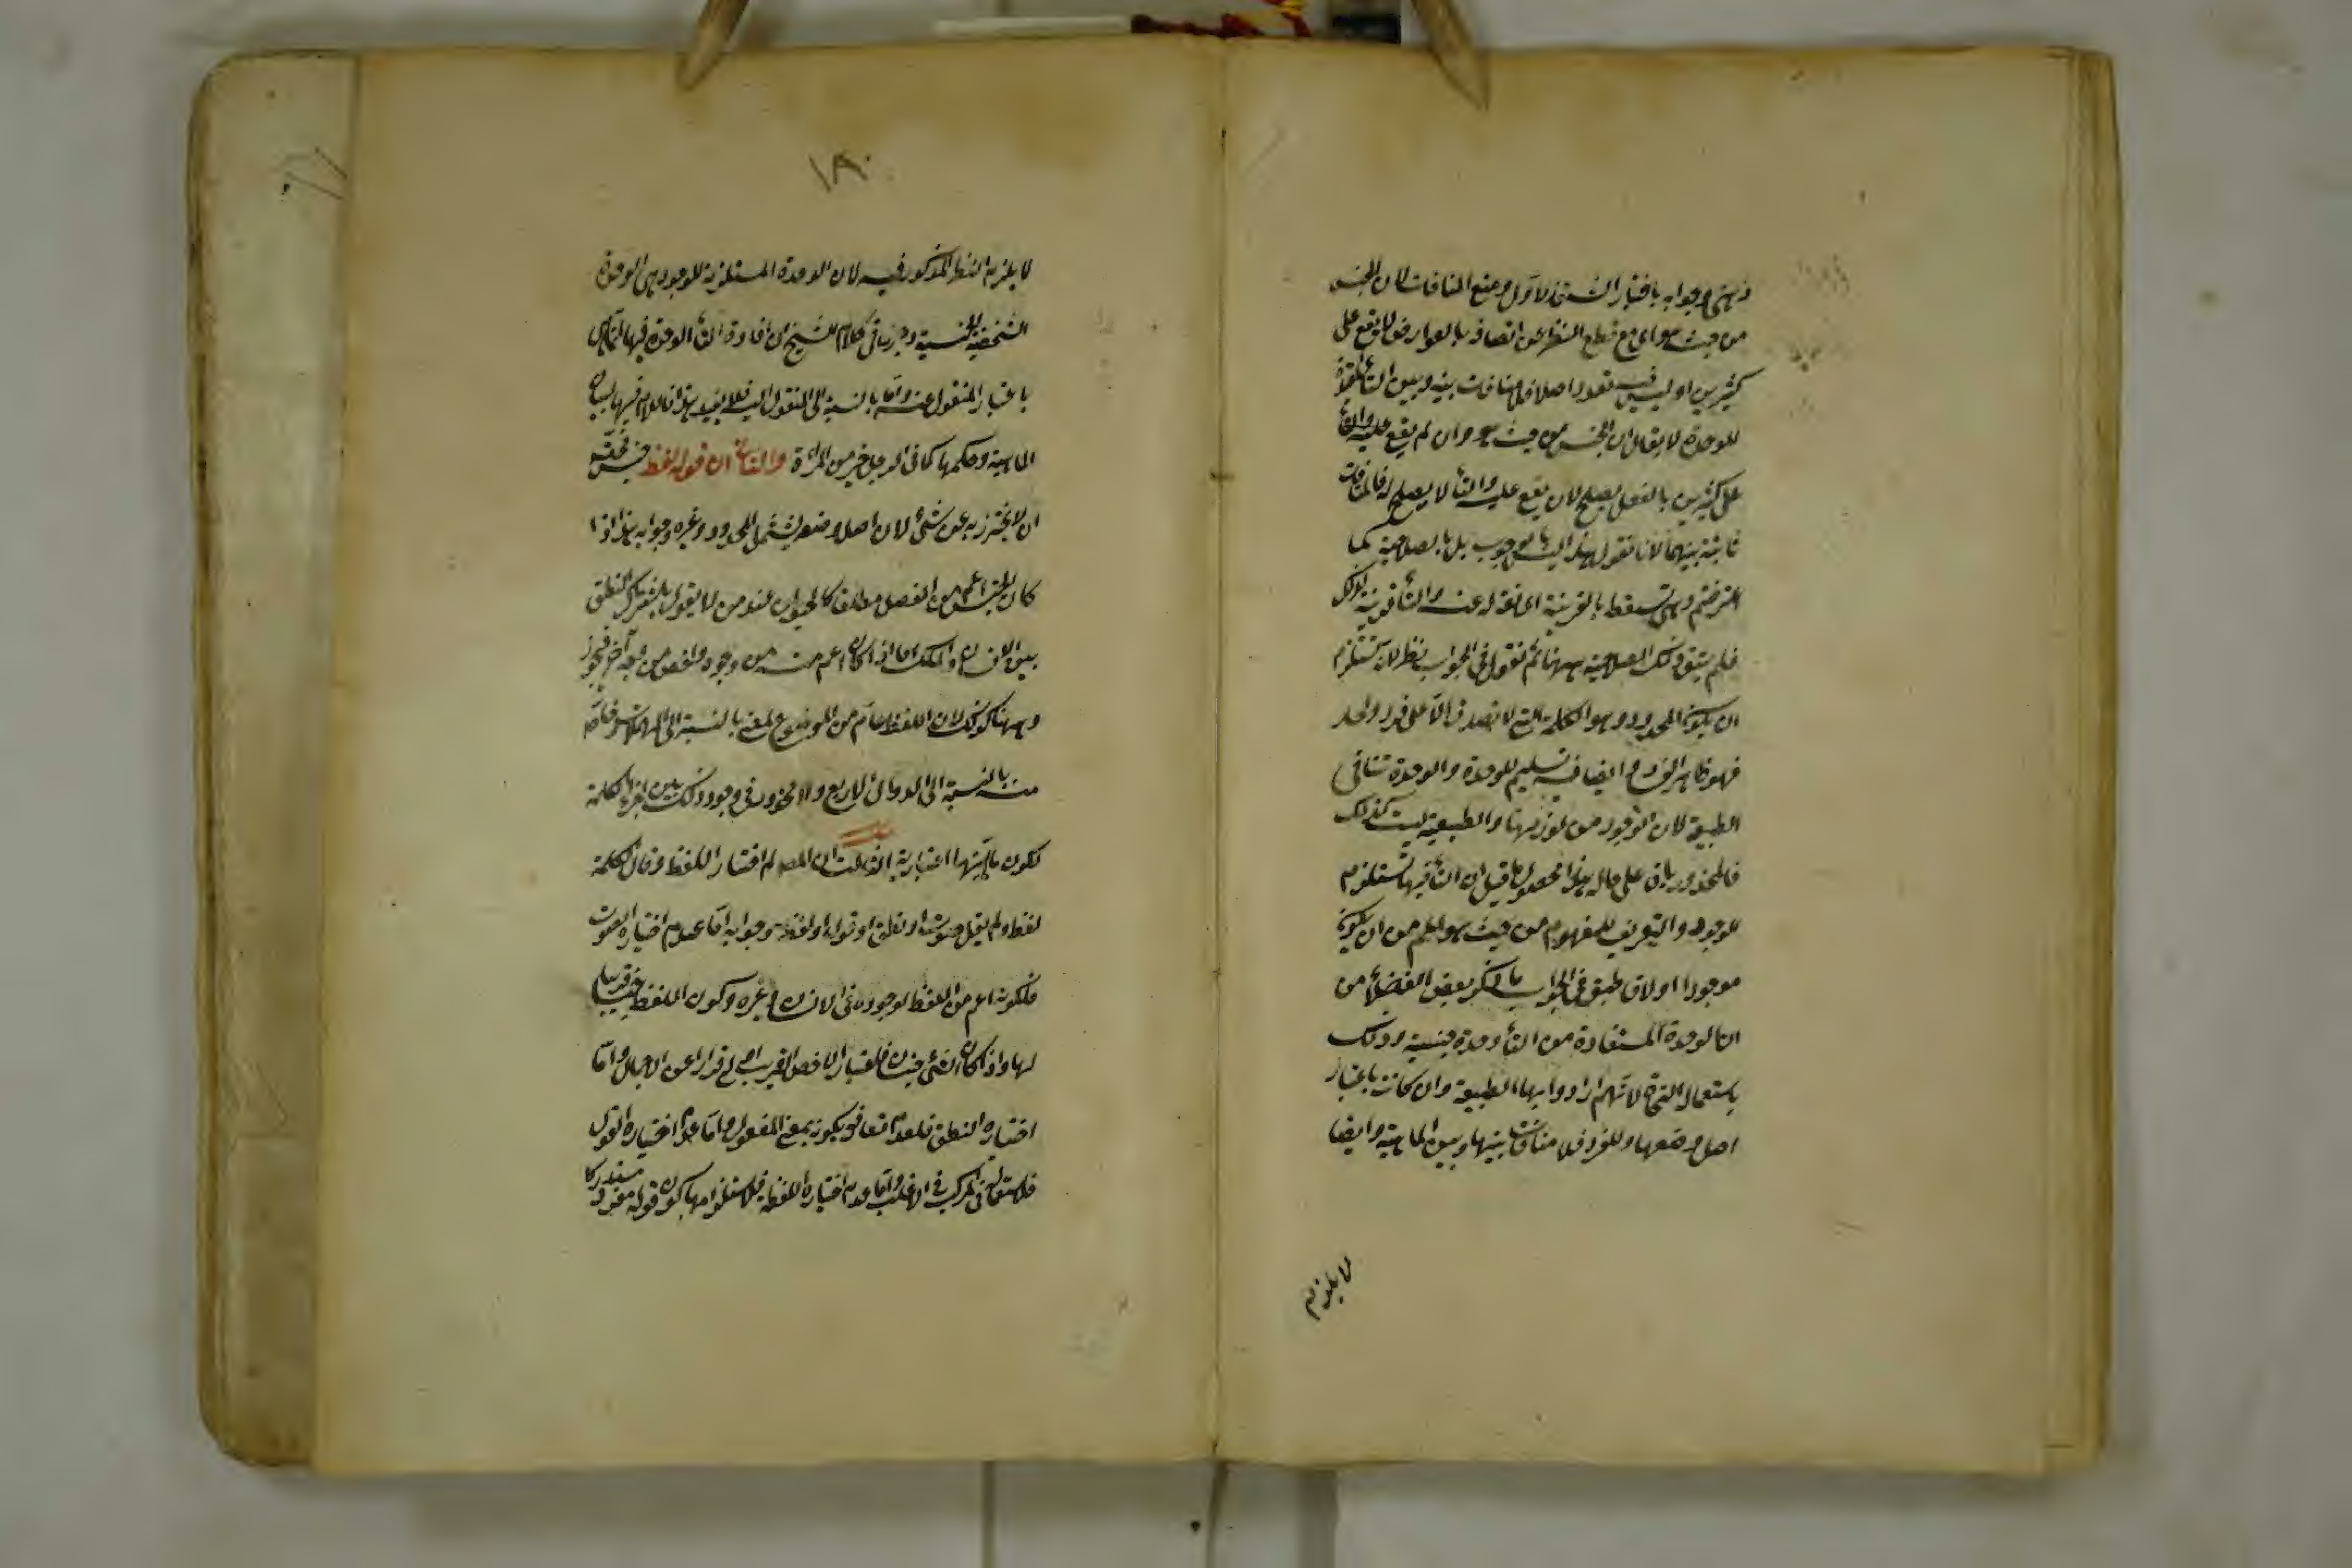 ذهني وجوابه باختيار الشق الاول ومنع المنافات لان الجنس
من حيث هو اي مع قطع النظر عن اتصافه بالعوارض لا يقع على
كثيرين او ليس فيه تعدد اصلا فلا منافات بينه وبين التاء
للوحدة لا يقال ان الجنس من حيث هو وان لم يقع
على كثيرين بالفعل يصلح لان يقع عليه والتاء لا يصلح له فالمنافات
ثابتة بينهما لانا نقول هذا ليس بالوجوب بل بالصلاحية كما
اعترفتم وهي تسقط بالقرينة المانعة له عنه والتاء قرينة لذلك
فلم يبق ذلك الصلاحية ههنا ثم نقول في الجواب نظر لانه يستلزم
ان يكون المحدود وهو الكلمة التي لا تصدق الا على فرد واحد
فهو ظاهر الفرد وايضا فيه تسليم للوحدة والوحدة تنافي
الطبيعة لان الوجود من لوازمها والطبيعة ليست كذلك
فالمحذور باق على حاله هذا محصول ما قيل ان التاء فيها تستلزم
للوجود والتعريف للمفهوم من حيث هو اعلم من ان يكون
موجودا او لا في الجواب ما ذكر بعض الفضلاء من
ان الوحدة المستفادة من التاء وحدة جنسية وذلك
باستعمال النحاة لانهم ارادوا بها الطبيعة وان كانت باعتبار
اصل وضعها للفرد فلا منافات بينها وبين الماهية وايضا
لا يلزم
١٨٠
لا يلزم النظر المذكور فيه لان الوحدة المستلزمة للوجود هي الوحدة
الشخصية الجنسية في كلام الشيخ ان افادة التاء الوحدة فيها
باعتبار المنقول عنه واما بالنسبة الى المنقول اليه فلا يفيد هذا فاللام فيها لبيان
الماهية وحكمها كما في الرجل خير من المراة والثاني ان قوله لفظ جنس
ان لا يحترز به عن شيء لان اصل وضعه ليشمل المحدود وغيره وجوابه هذا اذا
كان الجنس اعم من الفصل مطلقا كالحيوان عند من لا يقول
بين الانسان والملك اما اذا كان اعم منه من وجه واخص من وجه آخر فيجوز
وههنا كذلك لان اللفظ عام من الموضوع لمعنى بالنسبة الى المهملات وخاص
منه بالنسبة الى الدوال الاربع ولا محذور في وجود ذلك بين اجزاء الكلمة
لكون ماهيتها اعتبارية الثالث ان المصـ لم اختار اللفظ وقال الكلمة
لفظ ولم يقل صوت او نطق او قول او لفظة وجوابه اما عدم اختياره الصوت
فلكونه اعم من اللفظ لوجوده في الانسان وغيره وكون اللفظ جنسا قريبا
لها واذا كان للشيء جنسان فاختيار الاخص القريب اولى فرارا عن الاجمال واما
اختياره النطق فلعدم تعارفه كونه بمعنى المفعول واما عدم اختياره القول
فلاستعماله في المركب في الاغلب واما عدم اختياره اللفظة فلاستلزامها كون قوله مفرد مستدركا